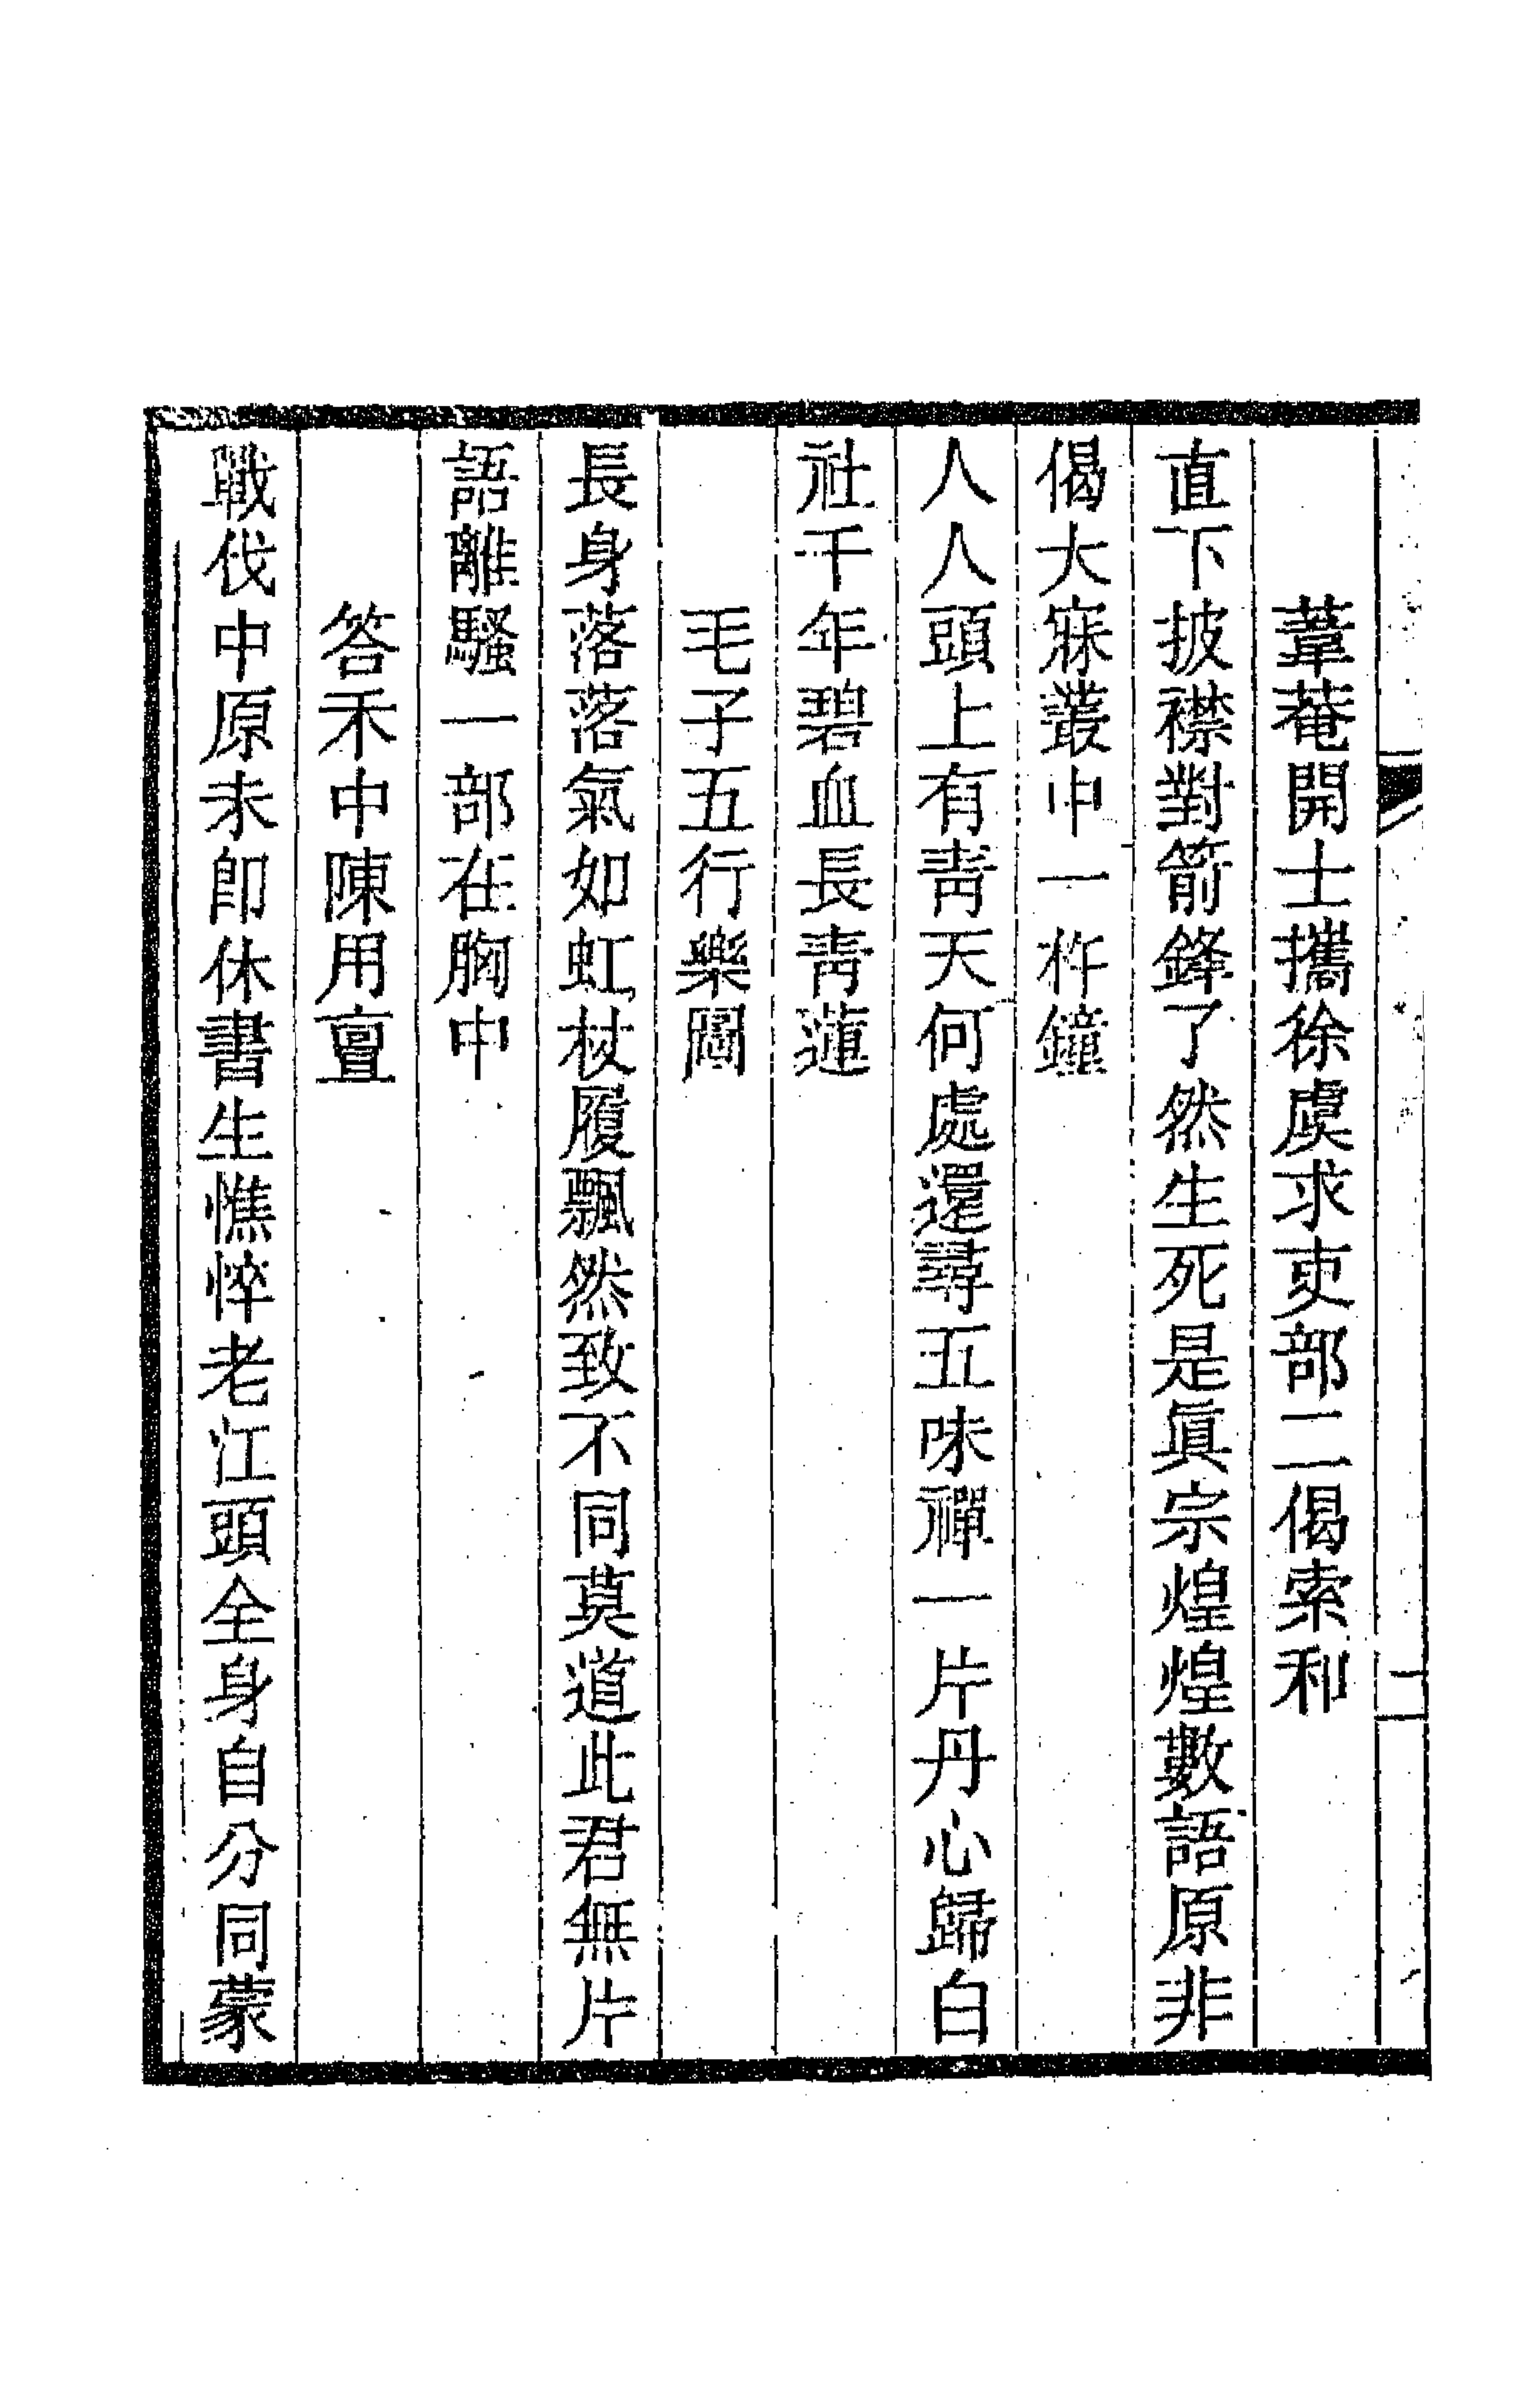 葦菴開士攜徐虞求吏部二偈索和
直下披襟對箭鋒了然生死是眞宗煌煌數語原非
偈大寐叢中一杵鐘
人人頭上有靑天何處還尋五味禪一片丹心歸白
社千年碧血長靑蓮
毛子五行樂圖
長身落落氣如虹杖履飄然致不同莫道此君無片
語離騷一部在胸中
答禾中陳用亶
戰伐中原未卽休書生憔悴老江頭全身自分同蒙
二